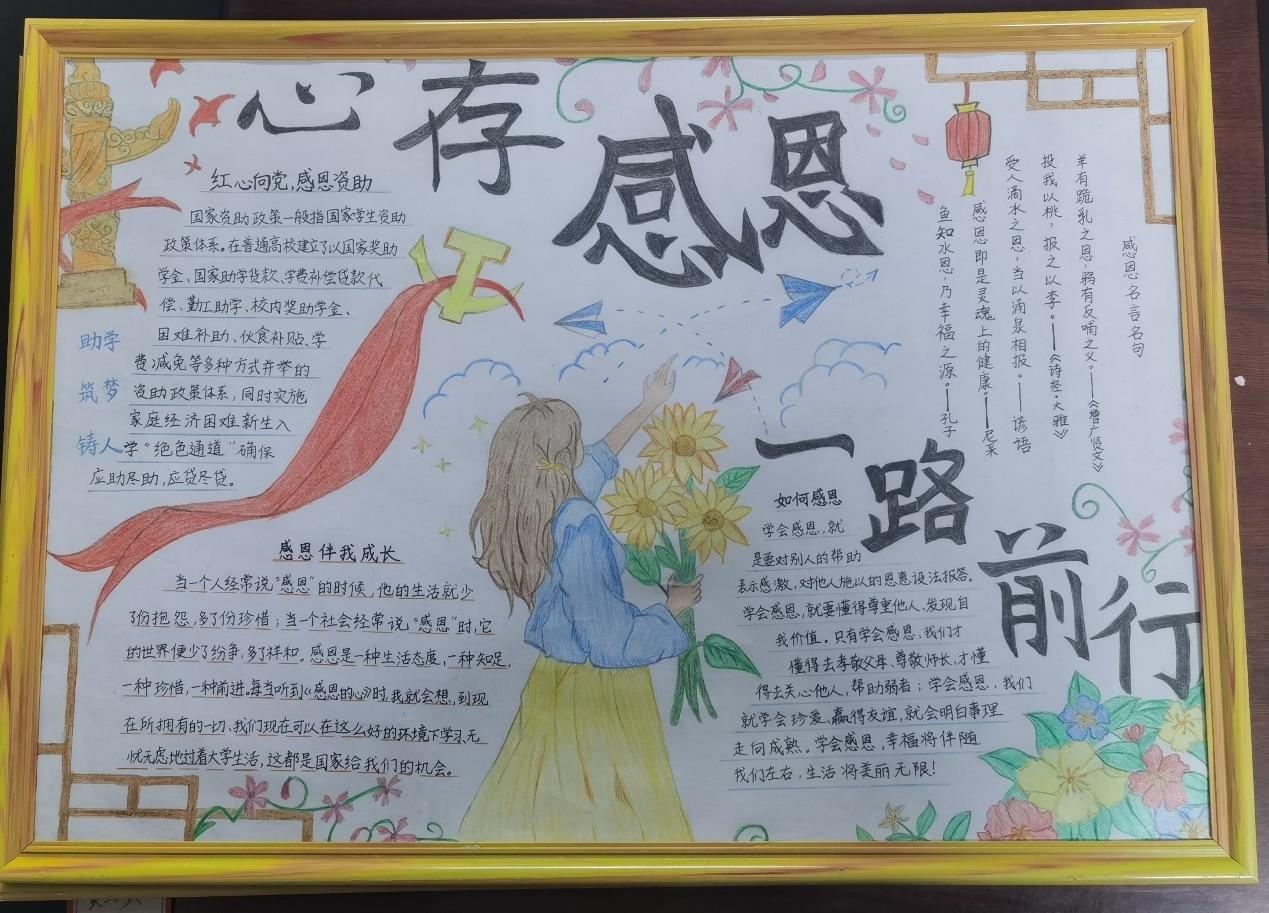 心存感恩
一路前行
红心向党,感恩资助
国家资助政策一般指国家学生资助
政策体系。在普通高校建立了以国家奖助
学金、国家助学贷款、学费补偿贷款代
偿、勤工助学、校内奖助学金、
困难补助、伙食补贴、学
费减免等多种方式并举的
资助政策体系,同时实施
家庭经济困难新生入
学“绝色通道”确保
应助尽助,应贷尽贷。
助学
筑梦
铸人
感恩伴我成长
当一个人经常说“感恩”的时候,他的生活就少
了份抱怨,多了份珍惜;当一个社会经常说“感恩”时,它
的世界便少了纷争,多了祥和。感恩是一种生活态度,一种知足,
一种珍惜,一种前进。每当听到《感恩的心》时,我就会想,到现
在所拥有的一切、我们现在可以在这么好的环境下学习、无
忧无虑地过着大学生活,这都是国家给我们的机会。
感恩名言名句
羊有跪乳之恩,鸦有反哺之义。——《增广贤文》
投我以桃,报之以李。——《诗经·大雅》
受人滴水之恩,当以涌泉相报。——谚语
感恩即是灵魂上的健康——尼采
鱼知水恩,乃幸福之源。——孔子
如何感恩
学会感恩,就
是要对别人的帮助
表示感激,对他人施以的恩惠设法报答。
学会感恩,就要懂得尊重他人、发现自
我价值。只有学会感恩,我们才
懂得去孝敬父母、尊敬师长,才懂
得去关心他人,帮助弱者;学会感恩,我们
就学会珍爱、赢得友谊,就会明白事理
走向成熟。学会感恩,幸福将伴随
我们左右,生活将美丽无限!